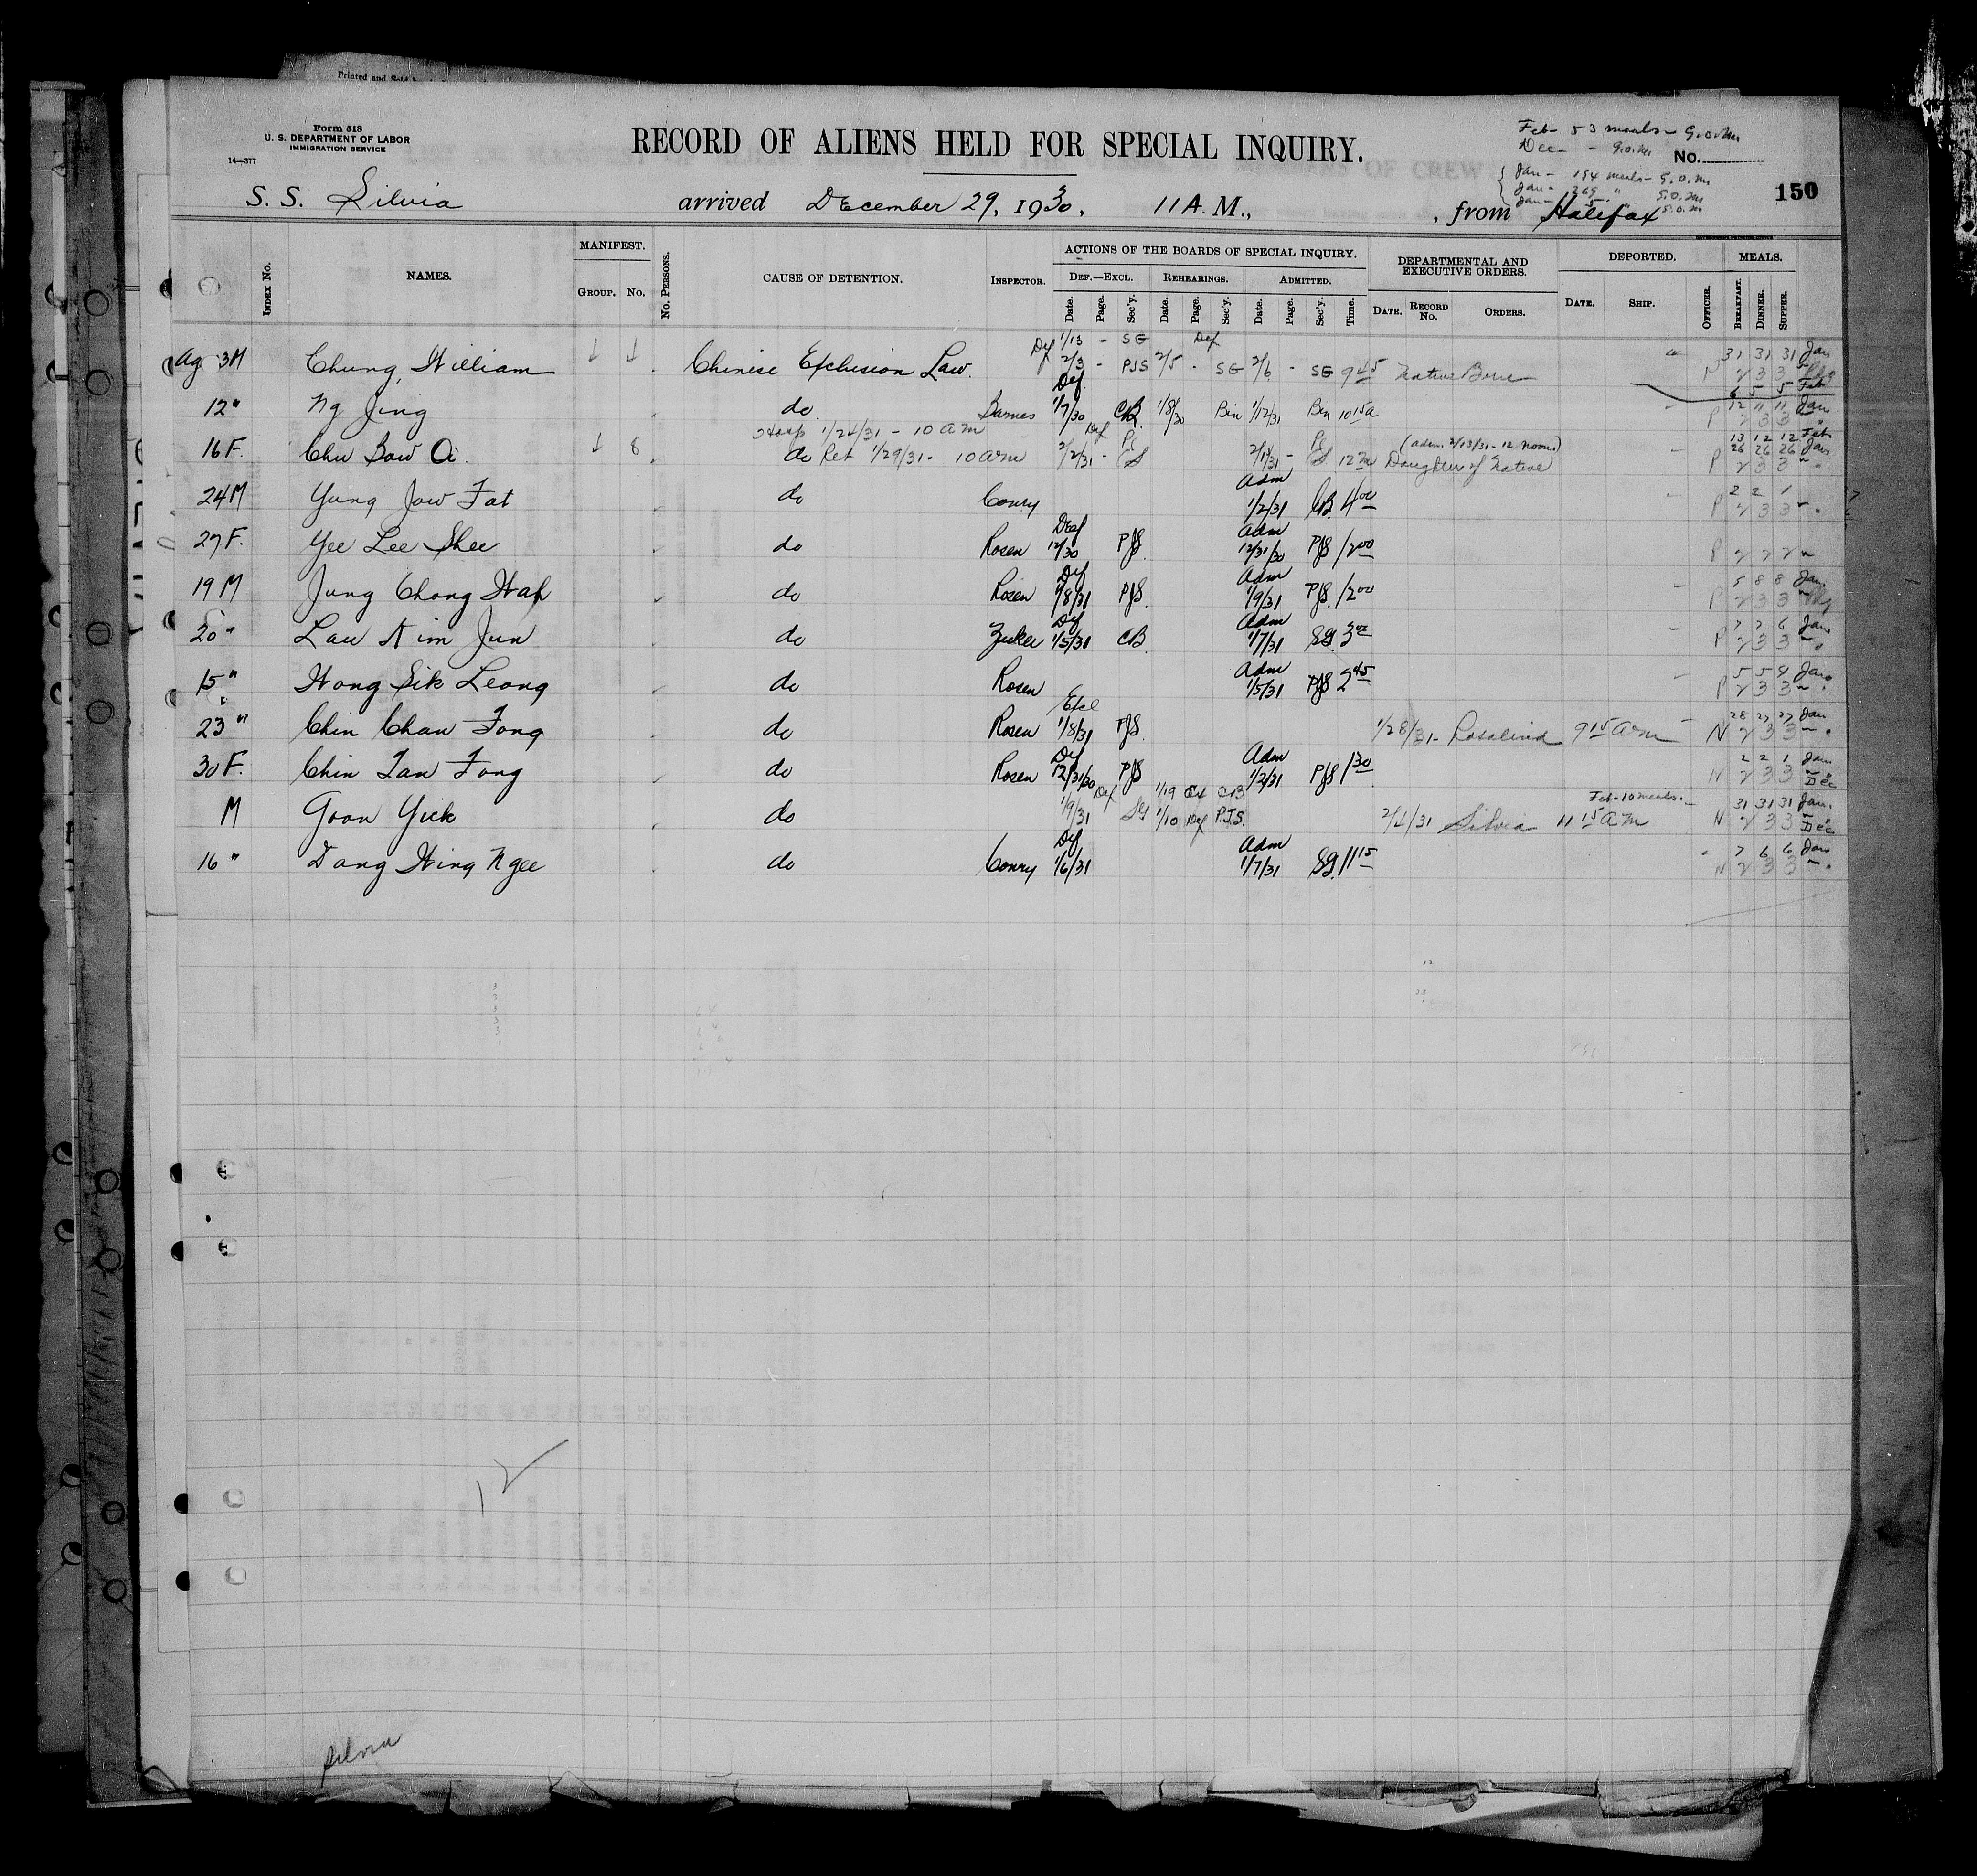 Printed and Sold
Form 518
U. S. DEPARTMENT OF LABOR
IMMIGRATION SERVICE
14—377
RECORD OF ALIENS HELD FOR SPECIAL INQUIRY.
Feb - 53 meals - G.O.M.
Dec - - G.O.M.
No.
Jan - 184 meals - G.O.M.
Jan - 269 " G.O.M.
Jan - 5 - " G.O.M.
150
S. S. Silvia arrived December 29, 1930, 11 A. M., , from Halifax
INDEX NO. NAMES. MANIFEST. GROUP. NO. NO. PERSONS. CAUSE OF DETENTION. INSPECTOR. ACTIONS OF THE BOARDS OF SPECIAL INQUIRY. DEF.—EXCL. REHEARINGS. ADMITTED. DEPARTMENTAL AND EXECUTIVE ORDERS. DEPORTED. MEALS.
Date. Page. Sec'y. Date. Page. Sec'y. Date. Page. Sec'y. Time. DATE. RECORD NO. ORDERS. DATE. SHIP. OFFICER. BREAKFAST. DINNER. SUPPER.
Def 1/13 - SG Def
Ag 3M Chung, William Chinese Exclusion Law. 2/3 - PJS 2/5 - SG 2/6 - SG 9 45 Native Born N 31 31 31 Jan
2 3 3
6 5 5 Feb
12 " Ng Jing do. Barnes Def 1/7/30 CB. 1/8/30 Bin 1/12/31 Ben 10 15 a P 12 11 11 Jan
2 3 3 "
Hosp 1/24/31 - 10 am
16 F. Chu Bow Oi 8 do Ret 1/29/31 - 10 am Def 2/2/31 - 2/11/31 - 12 M (adm. 2/13/31 - 12 noon) Daughter of Native P 13 12 12 Feb
26 26 26 Jan
2 3 3 "
24 M Yung Jow Fat do Conry Adm 1/2/31 CB. 4 00 P 2 2 1
2 3 3 "
27 F. Yee Lee Shee do Rosen Def 12/30 PJS. Adm 12/31/30 PJS 12 00 P 2 2 2 "
19 M Jung Chong Wah do Rosen Def 1/8/31 PJS. Adm 1/9/31 PJS. 12 00 P 5 8 8 Jan
2 3 3 "
20 " Lau Kim Jun do Zucker Def 1/5/31 CB. Adm 1/7/31 SG. 3 00 P 7 7 6 Jan
2 3 3 "
15 " Wong Sik Leong do Rosen Adm 1/5/31 PJS 2 45 P 5 5 4 Jan
2 3 3 "
23 " Chin Chan Fong do Rosen Excl 1/8/31 PJS. 1/28/31 - Rosalind 9 15 am N 28 27 27 Jan
2 3 3 "
30 F. Chin Tan Fong do Rosen Def 12/31/30 PJS Adm 1/2/31 PJS 1 30 N 2 2 1 Jan
2 3 3 Dec
M Goon Yick do Def 1/9/31 SG 1/19 Ex C.B. 1/10 Def P.J.S. 2/4/31 Silvia 11 15 AM Feb - 10 meals. N 31 31 31 Jan.
2 3 3 Dec
16 " Dong Wing Ngee do Conry Def 1/6/31 Adm 1/7/31 SG. 11 15 N 7 6 6 Jan
2 3 3 "
12
Silvia